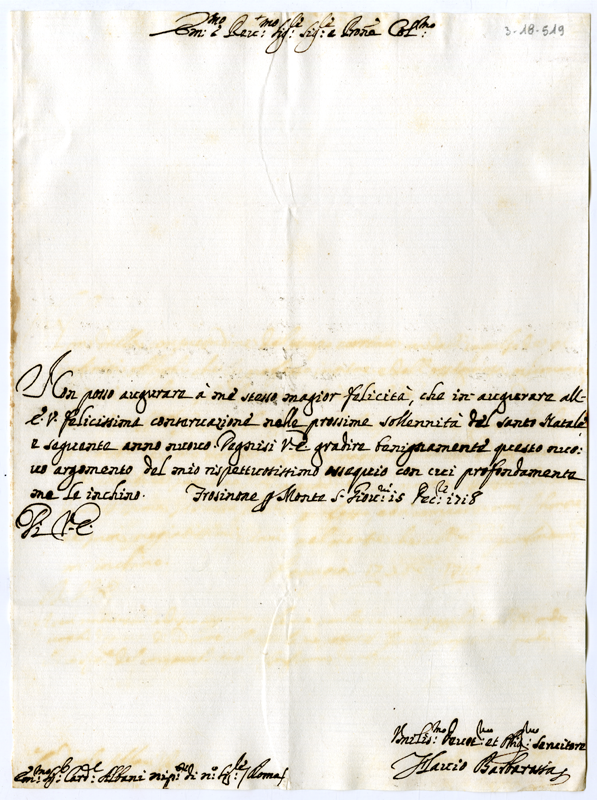 3-18-519
Em:mo e Rev:mo Sig:re Sig:re e Prone Col:mo
Non posso augurare à me stesso magior felicità, che in augurare all'
E: V: felicissima conseruazione nelle prossime sollennità del Santo Natale
e seguente anno nuouo. Degnisi V: E: gradire benignamente questo nuo:
uo argomento del mio rispettuosissimo ossequio con cui profondamente
me le inchino. Frosinone Monte S: Giou:ni 15 Dec:re 1718
Di V: E:
Humilis:mo Deuot:mo et Obligat:mo Seruitore
Flauio Barbarossa
Em:mo Sig: Card:le Albani nip:te di n:ro Sig:re (Roma)